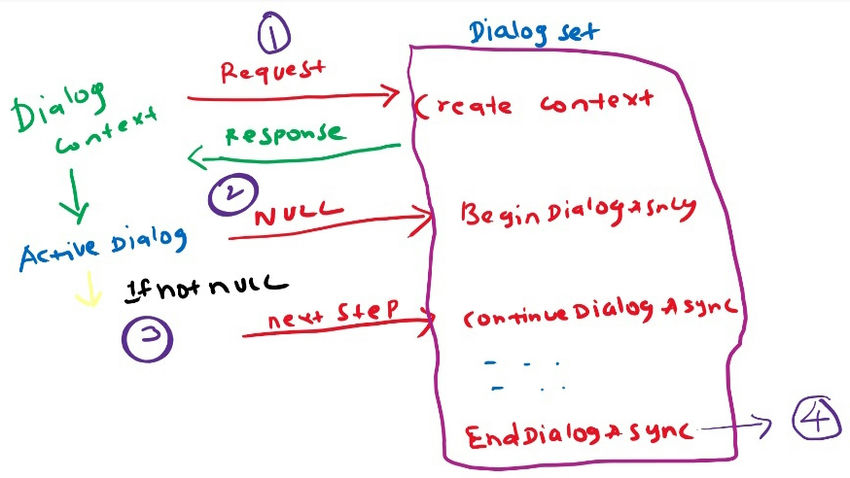 1
Dialog set
Request
Create context
Dialog
context
Response
2
NULL
BeginDialogAsncy
Active Dialog
If not null
3
next step
ContinueDialogAsync
EndDialogAsync
4